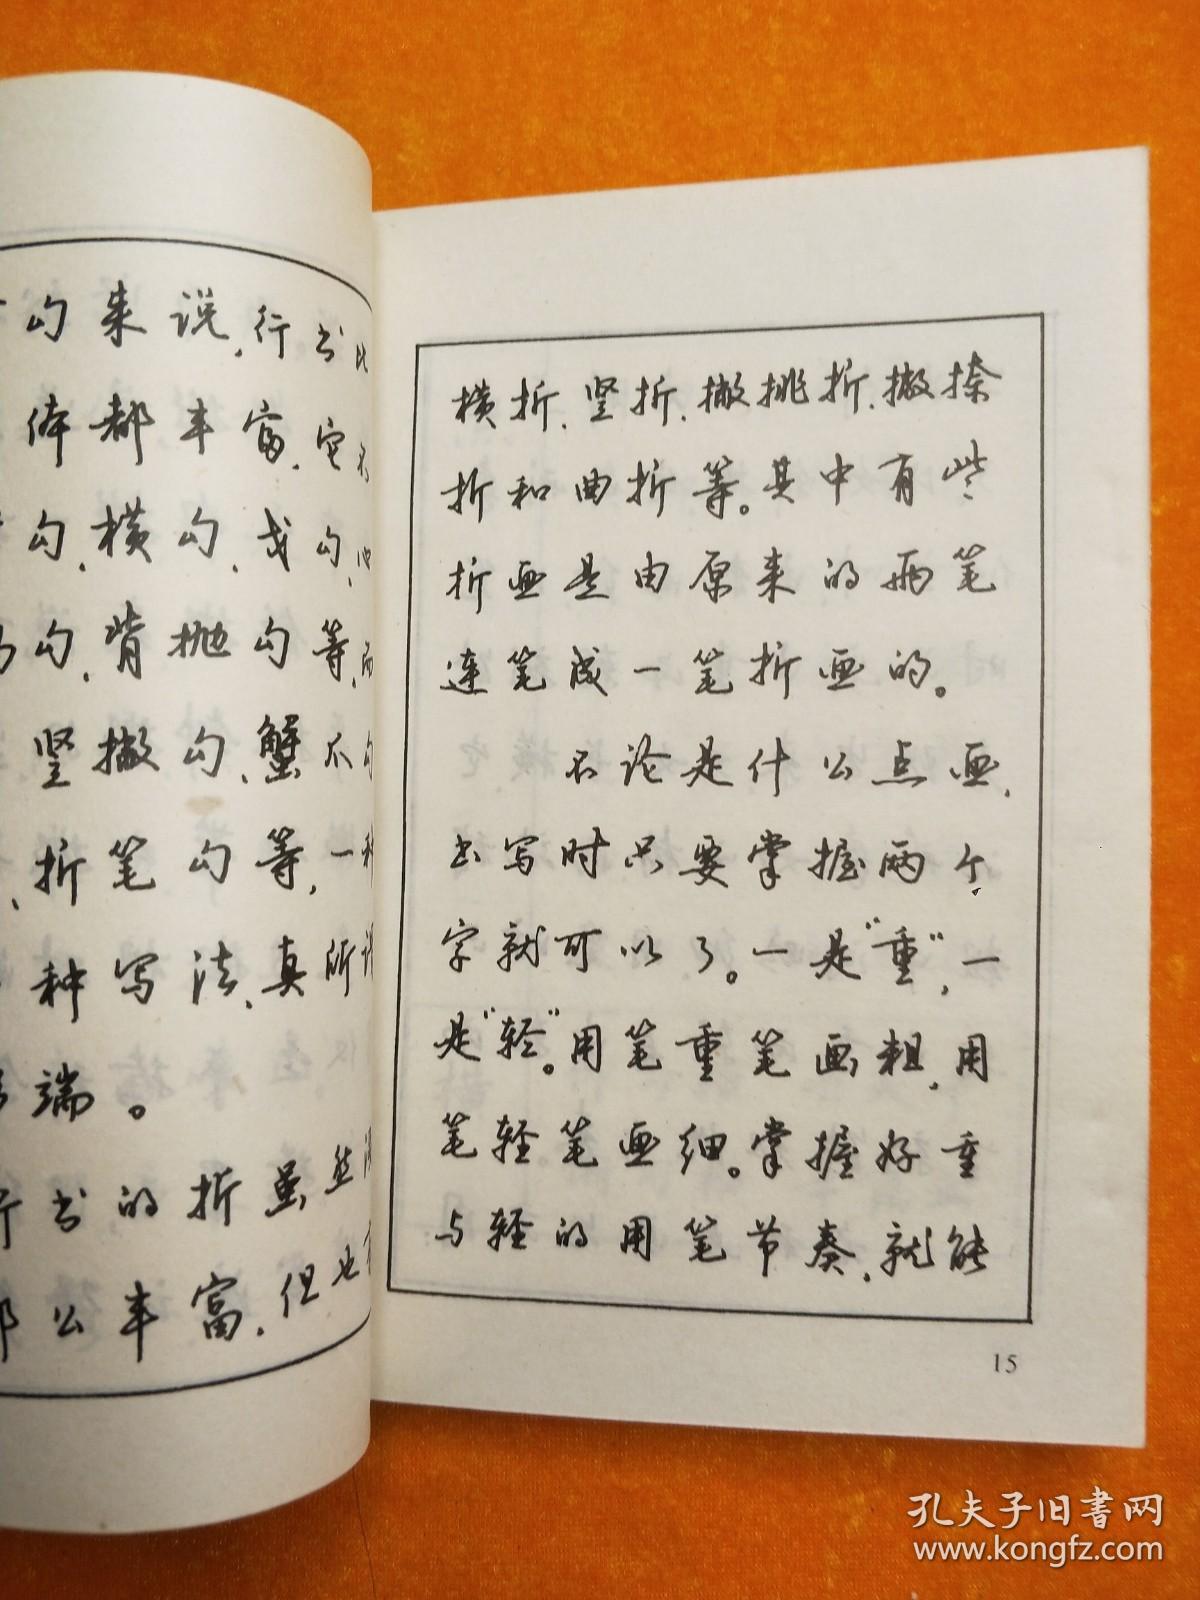 勾来说，行书比
体都丰富，它不
勾、横勾、戈勾、心
勾、背抛勾等，而
竖撇勾、蟹爪勾
折笔勾等，一种
种写法，真所谓
端。
书的折虽然没
么丰富，但也有
横折、竖折、撇挑折、撇捺
折和曲折等。其中有些
折画是由原来的两笔
连笔成一笔折画的。
不论是什么点画，
书写时只要掌握两个
字就可以了。一是“重”，一
是“轻”。用笔重笔画粗，用
笔轻笔画细。掌握好重
与轻的用笔节奏，就能
15
孔夫子旧书网
www.kongfz.com